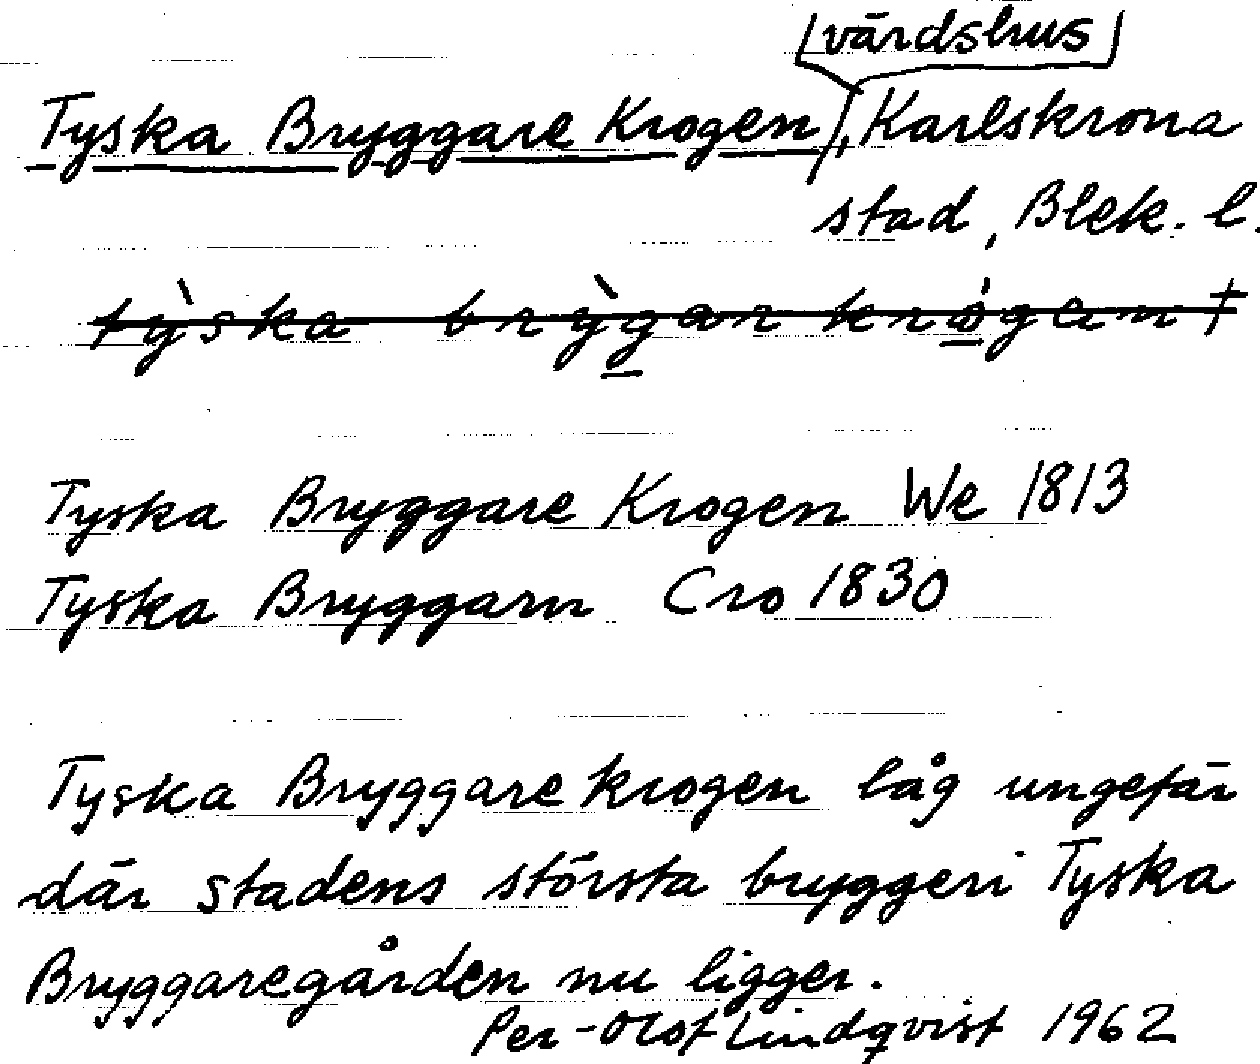 värdshus
Tyska Bryggare Krogen, Karlskrona
stad, Blek. l.
tỳska brỳgar krogen †
Tyska Bryggare Krogen We 1813
Tyska Bryggarn Cro 1830
Tyska Bryggare krogen låg ungefär
där stadens största bryggeri Tyska
Bryggaregården nu ligger.
Per-Olof Lindqvist 1962